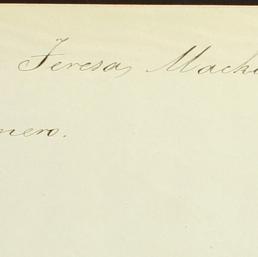 Teresa, Mach
nero.